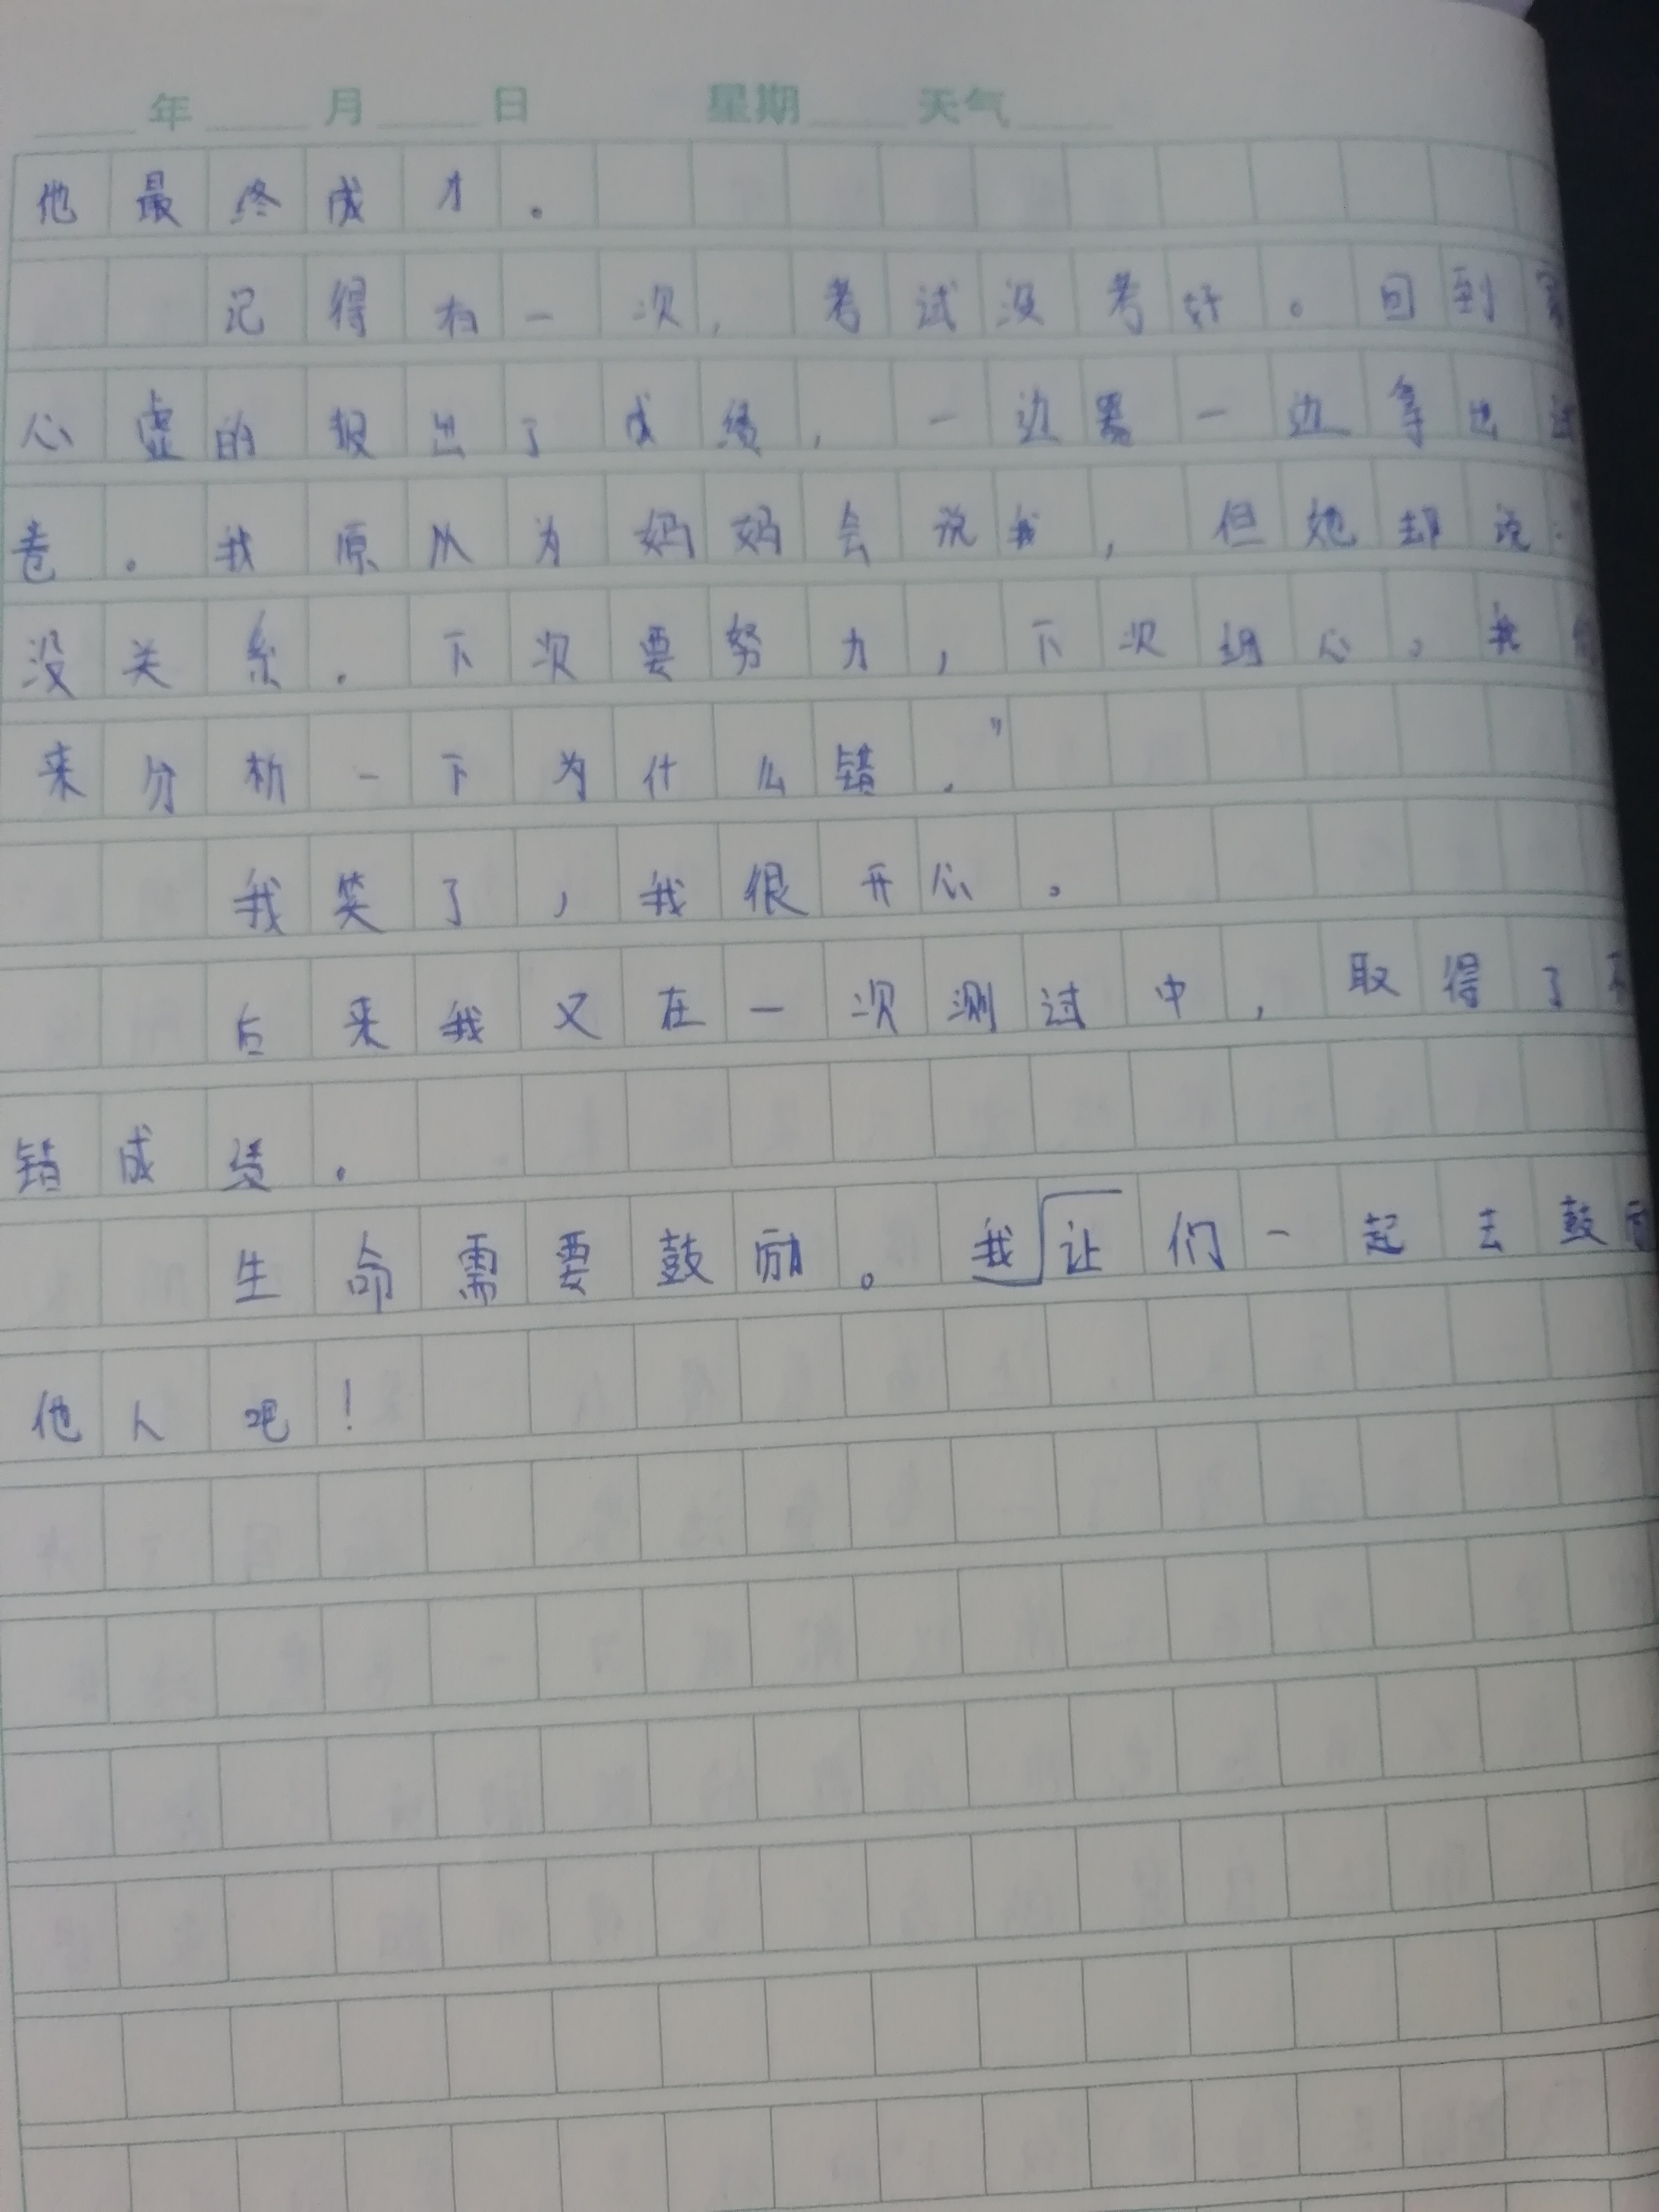 年 月 日 星期 天气
他最终成才。
记得有一次,考试没考好。回到家
心虚的报出了成绩,一边哭一边拿出试
卷。我原以为妈妈会说我,但她却说:
没关系.下次要努力,下次细心。我们
来分析一下为什么错.”
我笑了,我很开心。
后来我又在一次测试中,取得了不
错成绩.
生命需要鼓励。我让们一起去鼓励
他人吧!